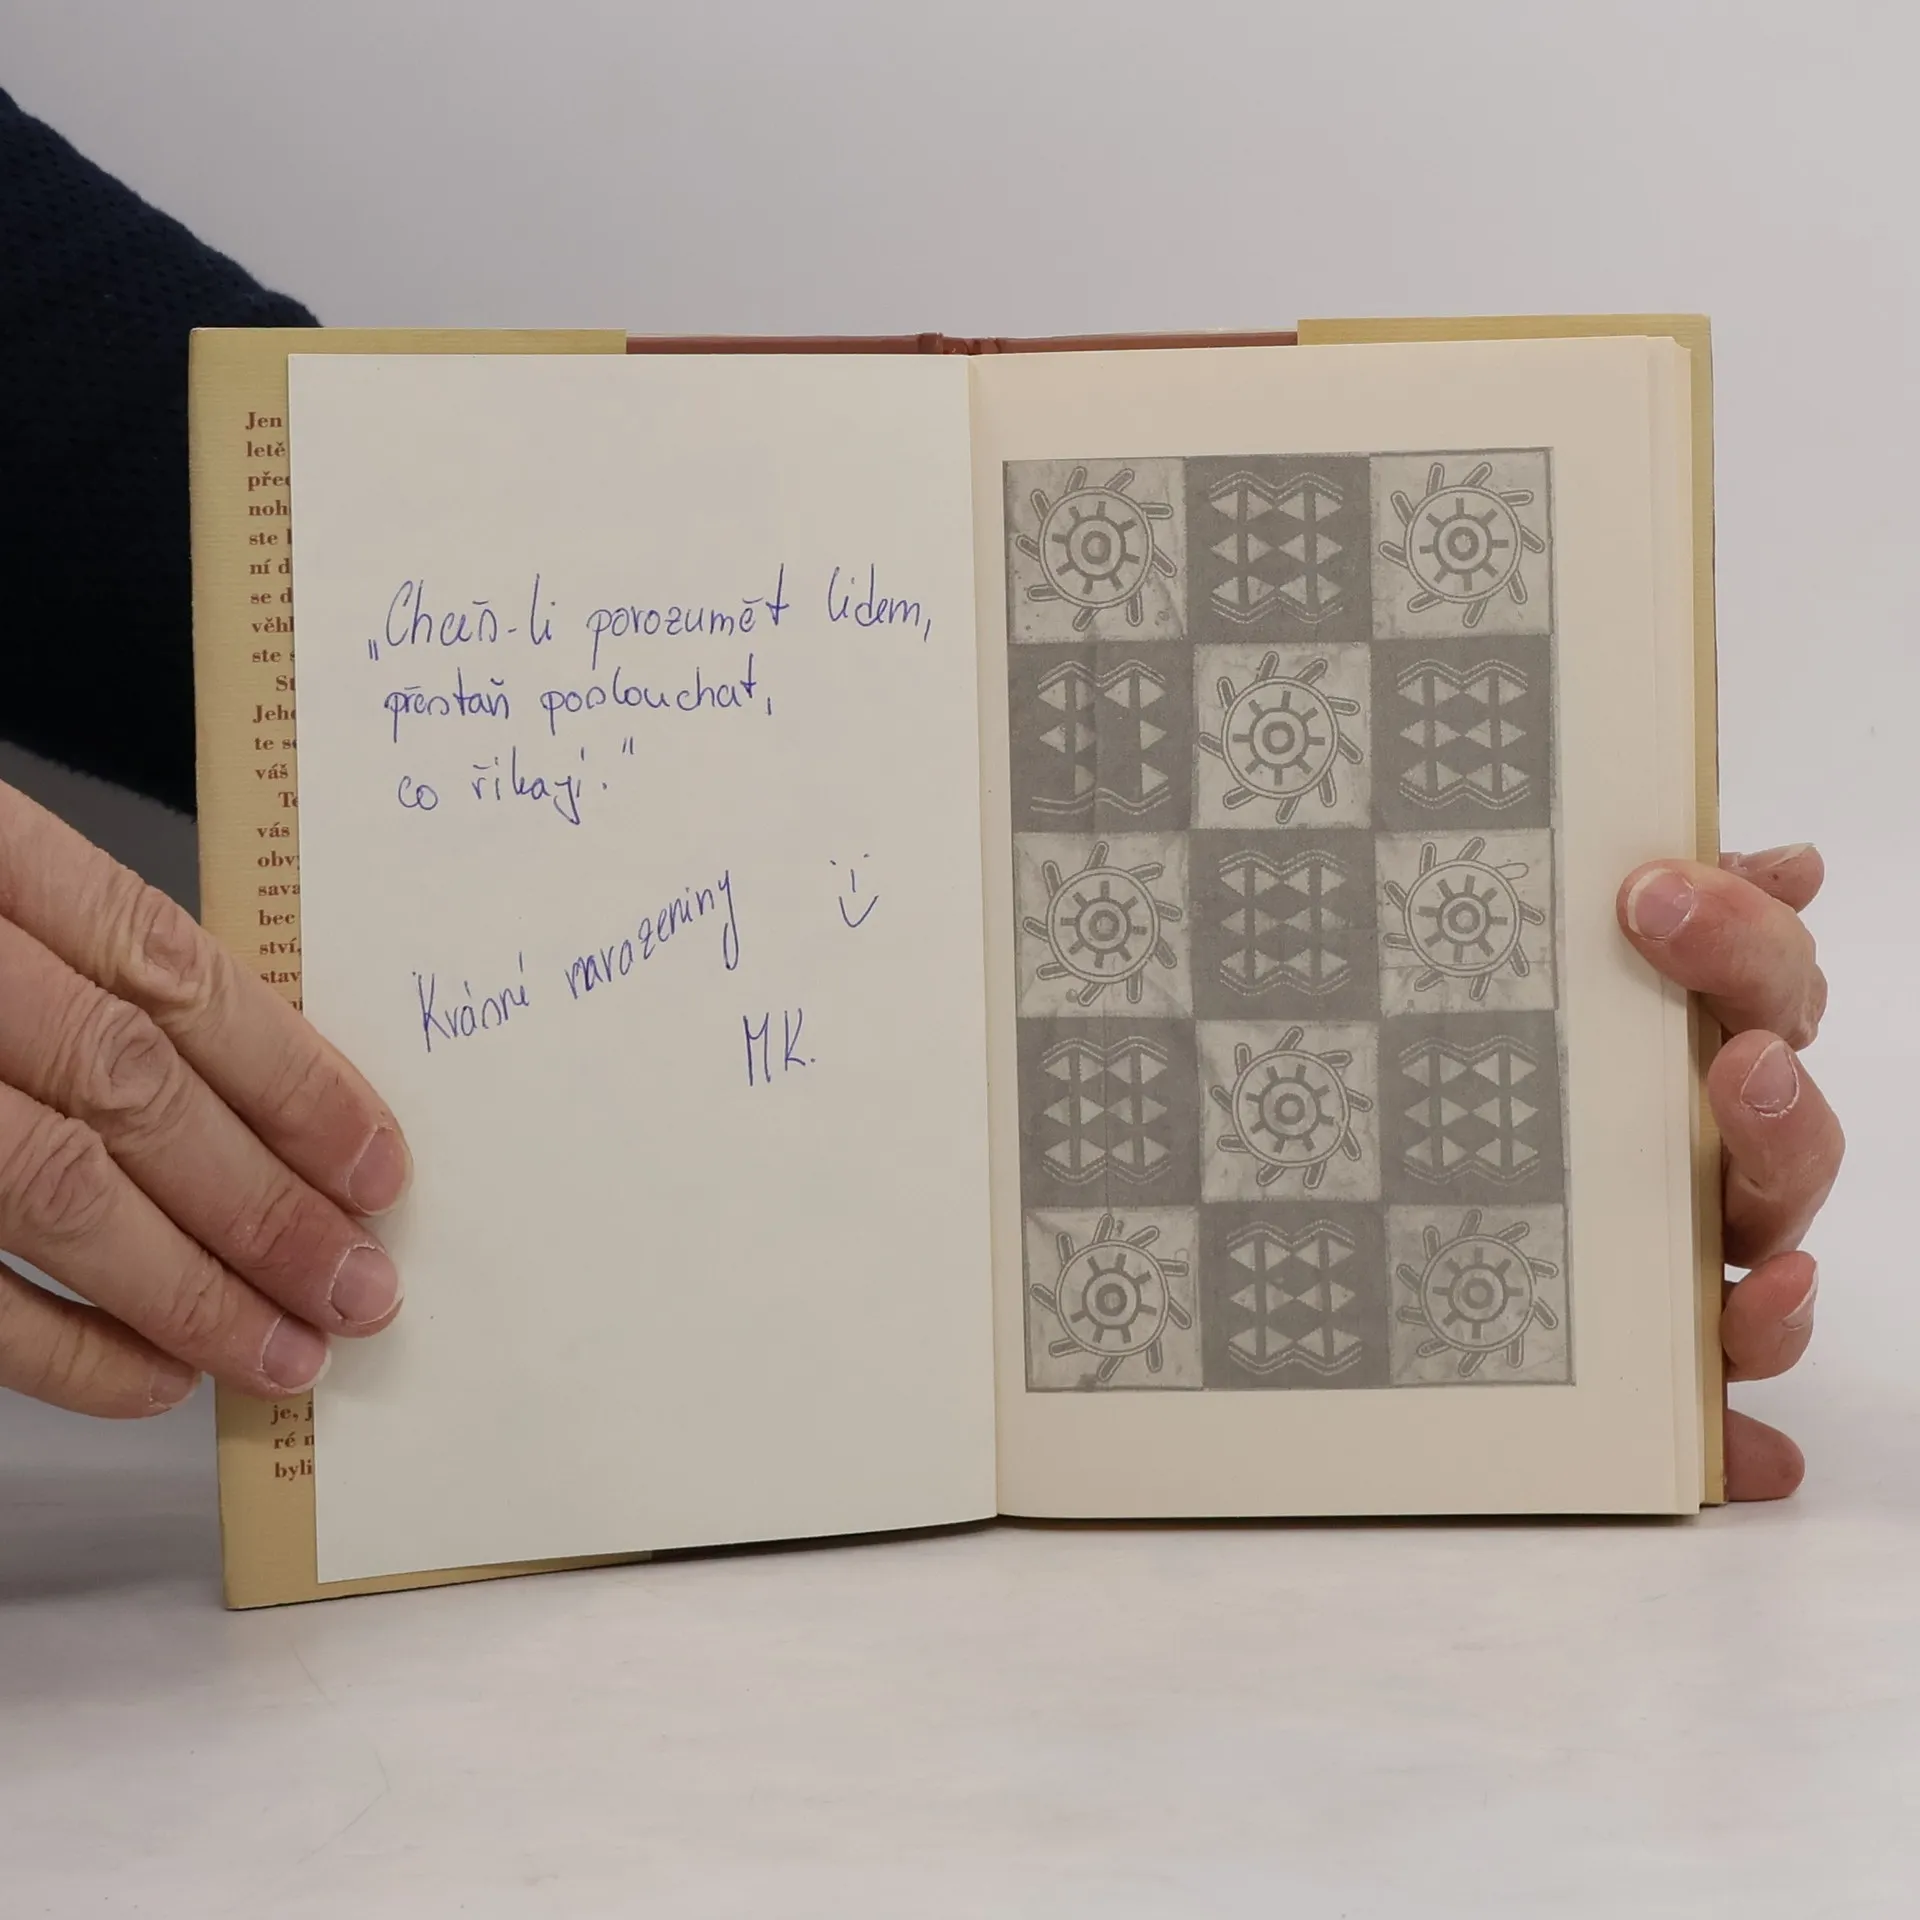 Jen
letě
pře
noh
ste
ní d
se d
věhl
ste
St
Jeho
te se
váš
Te
vás
obvy
sava
bec
ství,
stav
je, j
ré n
byli
„Chceš-li porozumět lidem,
přestaň poslouchat,
co říkají."
Krásné narozeniny
MK.